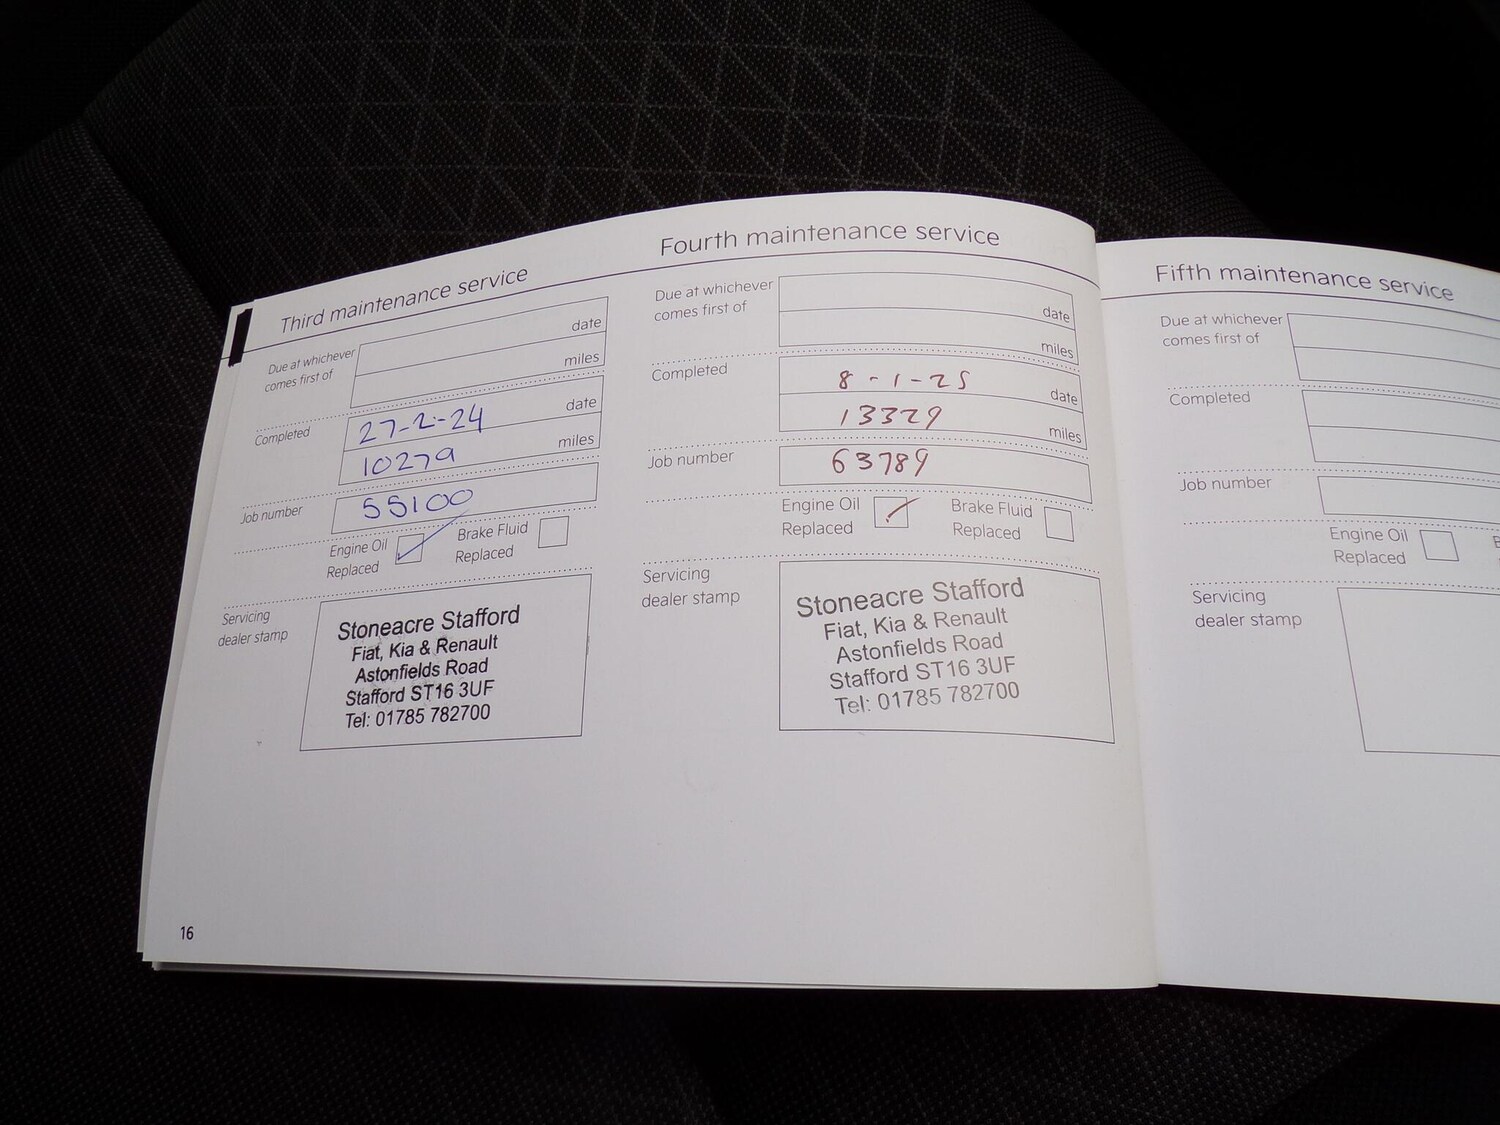 Third maintenance service
Due at whichever
comes first of
date
miles
Completed
27-2-24 date
10279 miles
Job number
55100
Engine Oil
Replaced
Brake Fluid
Replaced
Servicing
dealer stamp
Stoneacre Stafford
Fiat, Kia & Renault
Astonfields Road
Stafford ST16 3UF
Tel: 01785 782700
16
Fourth maintenance service
Due at whichever
comes first of
date
miles
Completed
8-1-25 date
13329 miles
Job number
63789
Engine Oil
Replaced
Brake Fluid
Replaced
Servicing
dealer stamp
Stoneacre Stafford
Fiat, Kia & Renault
Astonfields Road
Stafford ST16 3UF
Tel: 01785 782700
Fifth maintenance service
Due at whichever
comes first of
Completed
Job number
Engine Oil
Replaced
Servicing
dealer stamp